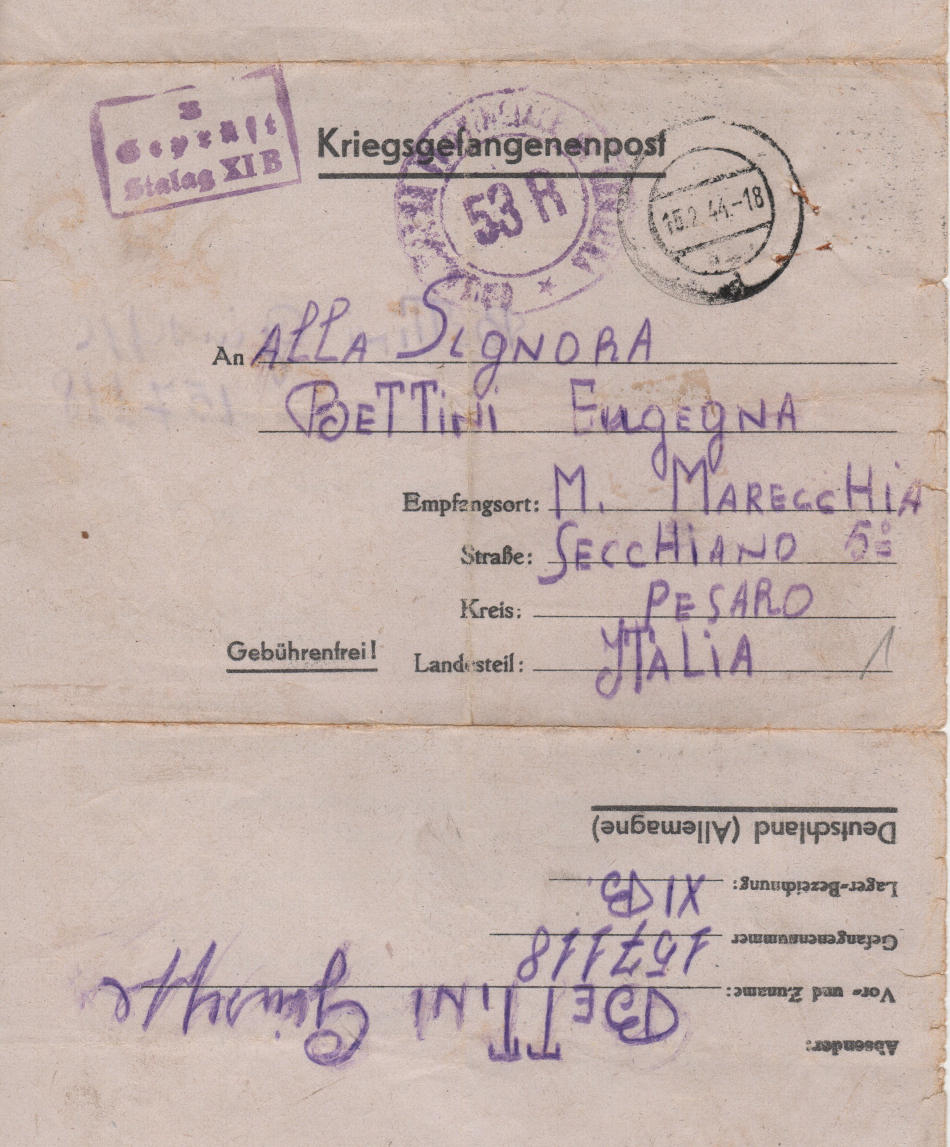 Geprüft
Stalag XI B
Kriegsgefangenenpost
53 R
15.2.44.-18
An ALLA SIGNORA
BETTINI EUGEGNA
Empfangsort: M. MARECCHIA
Straße: SECCHIANO 5
Kreis: PESARO
Gebührenfrei!
Landesteil: ITALIA
1
Absender:
Vor- und Zuname: BETTINI Giuseppe
Gefangenennummer 157118
Lager-Bezeichnung: XI B.
Deutschland (Allemagne)